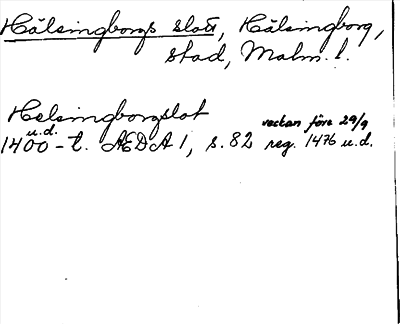 Hälsingborgs slott, Hälsingborg,
stad, Malm. l.
Helsingborgslot
u.d. veckan före 29/9
1400-t. ÆDA 1, s. 82 reg. 1476 u.d.